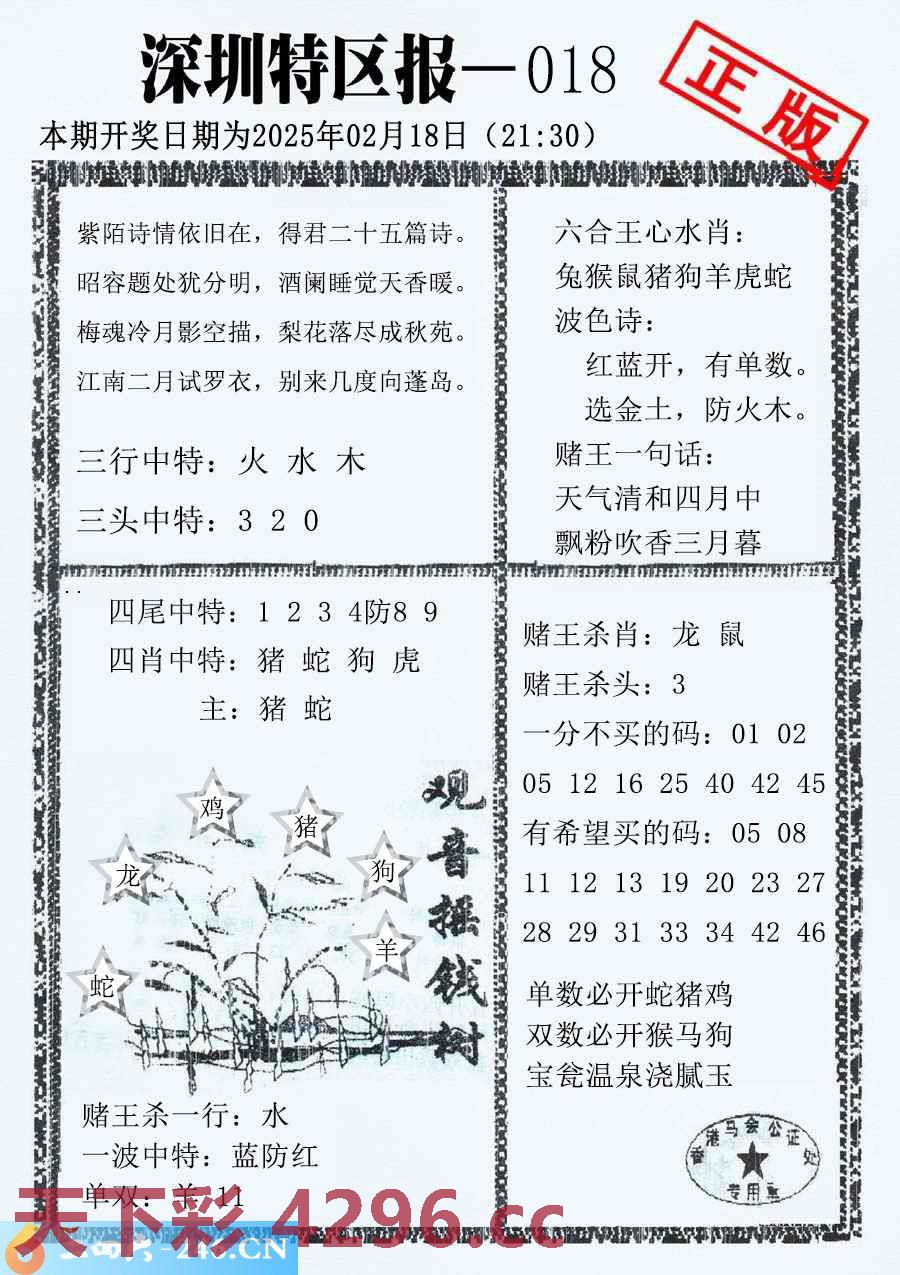 深圳特区报—018
正版
本期开奖日期为2025年02月18日（21:30）
紫陌诗情依旧在，得君二十五篇诗。
昭容题处犹分明，酒阑睡觉天香暖。
梅魂冷月影空描，梨花落尽成秋苑。
江南二月试罗衣，别来几度向蓬岛。
三行中特：火 水 木
三头中特：3 2 0
六合王心水肖：
兔猴鼠猪狗羊虎蛇
波色诗：
红蓝开，有单数。
选金土，防火木。
赌王一句话：
天气清和四月中
飘粉吹香三月暮
四尾中特：1 2 3 4防8 9
四肖中特：猪 蛇 狗 虎
主：猪 蛇
鸡
猪
龙
狗
羊
蛇
观音摇钱树
赌王杀一行：水
一波中特：蓝防红
单双：羊 11
赌王杀肖：龙 鼠
赌王杀头：3
一分不买的码：01 02
05 12 16 25 40 42 45
有希望买的码：05 08
11 12 13 19 20 23 27
28 29 31 33 34 42 46
单数必开蛇猪鸡
双数必开猴马狗
宝瓮温泉浇腻玉
香港马会公证处
专用章
天下彩 4296.cc
246.CN